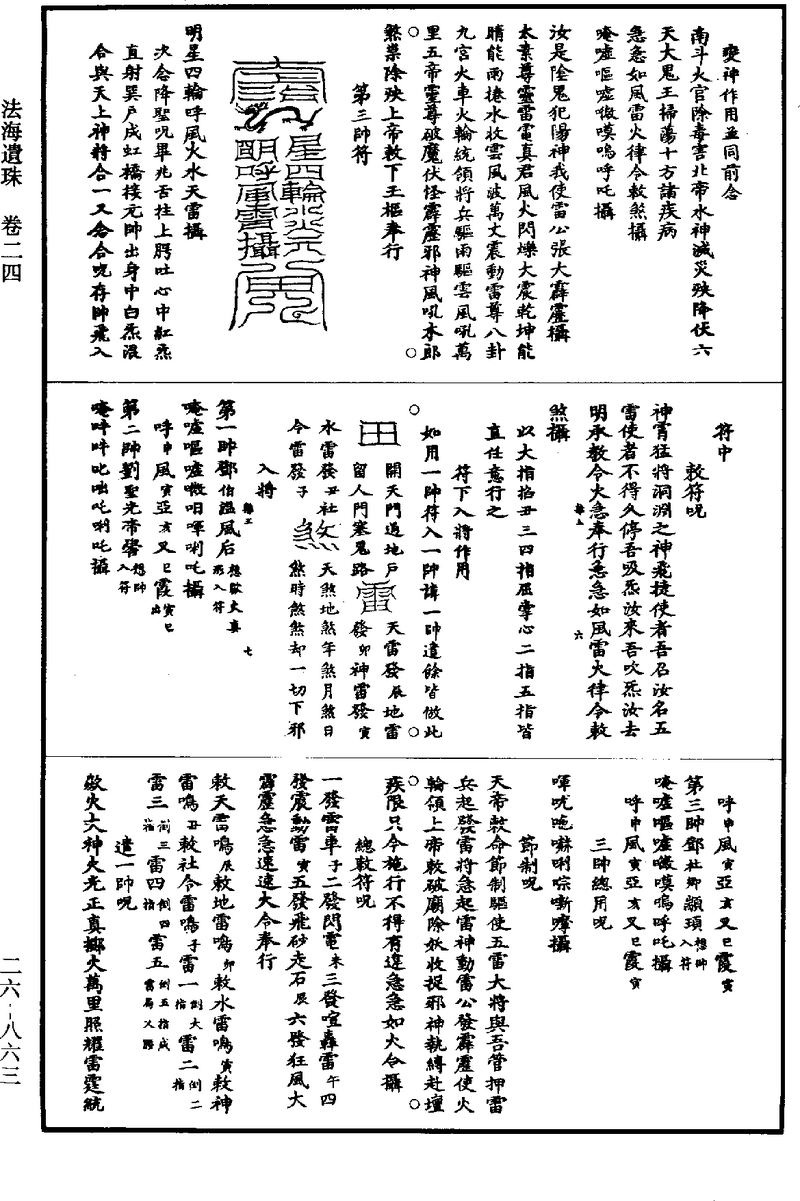 變神作用並同前念
南斗火官除毒害北帝水神滅災殃降伏六
天大鬼王掃蕩十方諸疾病
急急如風雷火律令敕煞攝
唵嘘嘔嘘㘈嘆嗚呼吒攝
汝是陰鬼犯陽神我使雷公張大霹靂攝
太素尊靈雷電真君風火閃爍大震乾坤能
晴能雨捲水收雲風波萬丈震動雷尊八卦
九宮火車火輪統領將兵驅雨驅雲風吼萬
里五帝靈尊破魔伏怪霹靂邪神風吼木郎
煞祟除殃上帝敕下玉樞奉行
第三帥符
星四輪火
明呼風雷攝
明星四輪呼風火水天雷攝
次念降聖呪畢兆舌拄上腭吐心中紅炁
直射巽戶成虹橋接元帥出身中白炁混
合與天上神將合一又念合呪存帥飛入
符中
敕符呪
神霄猛將洞淵之神飛捷使者吾召汝名五
雷使者不得久停吾吸炁汝來吾吹炁汝去
明承敕令火急奉行急急如風雷火律令敕
煞攝
以大指掐丑三四指屈掌心二指五指皆
直任意行之
符下入將作用
如用一帥符入一帥諱一帥遣餘皆倣此
田 開天門過地戶
留人門塞鬼路
雷 天雷發辰地雷
發卯神雷發寅
水雷發丑社
令雷發子
天煞地煞年煞月煞日
煞時煞煞却一切下邪
入將
第一帥鄧伯溫風后
唵嘘嘔嘘㘈呬嗶唎吒攝
呼申風寅亞亥又巳霞寅巳
第二帥劉聖光帝嚳想帥入符
唵吽吽叱咄吒唎吒攝
呼申風寅亞亥又巳霞寅
第三帥鄧社卿顓頊想帥入符
唵嘘嘔嘘㘈嘆嗚呼吒攝
呼申風寅亞亥又巳霞寅
三帥總用呪
攝
節制呪
天帝敕命節制驅使五雷大將與吾管押雷
兵起發雷將急起雷神動雷公發霹靂使火
輪領上帝敕破廟除妖收捉邪神執縛赴壇
疾限只今施行不得有違急急如火令攝
總敕符呪
一發雷車子二發閃電未三發喧轟雷午四
發震動雷寅五發飛砂走石辰六發狂風大
霹靂急急速速大令奉行
敕天雷鳴辰敕地雷鳴卯敕水雷鳴寅敕神
雷鳴丑敕社令雷鳴子雷一倒大指雷二倒二指
雷三倒三指雷四倒四指雷五倒五指成雷局
遣一帥呪
歘火大神火光正真擲火萬里照耀雷霆統
法海遺珠 卷二四
二六-八六三